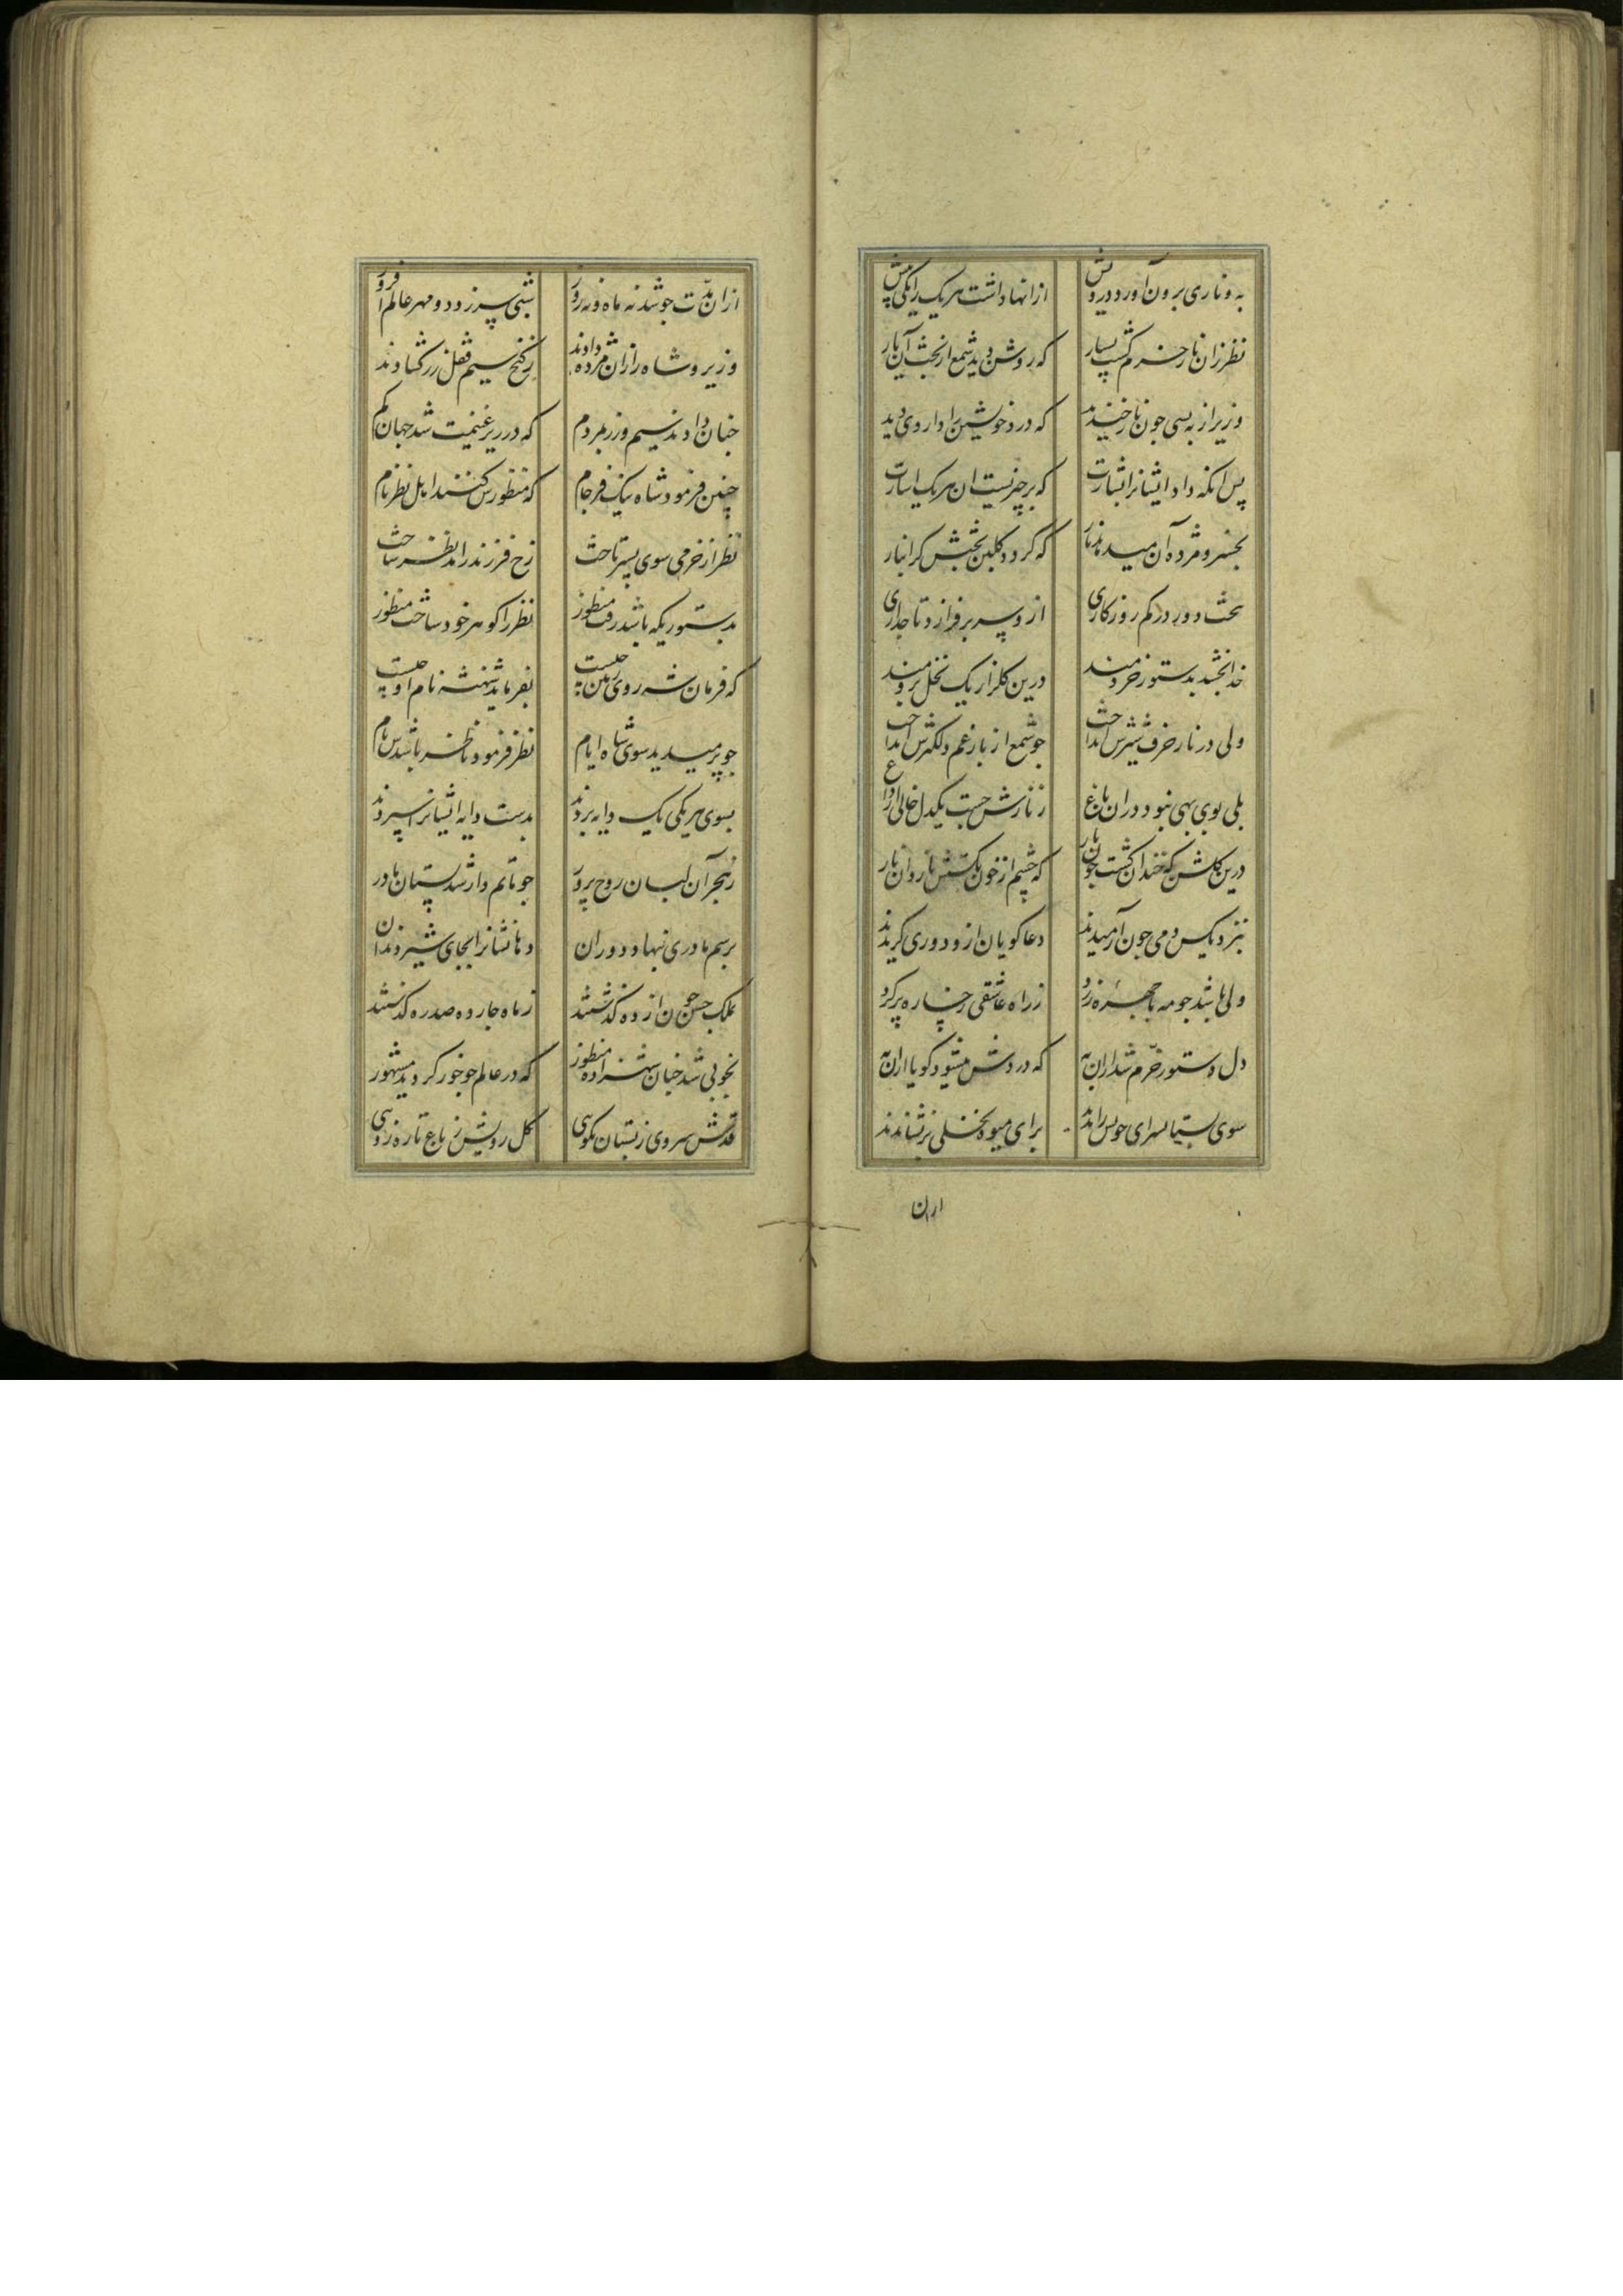 به و ناری برون آورد درویش ازانها داشت هر یک را یکی پیش
نظر زان نار خرم گشت بسیار که روشن دید شمع از بخت آن نار
وزیر از به بسی چون نار خندید که درد خویشتن را داروی دید
پس انکه داد ایشانرا بشارت که بر چیزیست ان هر یک اشارت
بخسرو مژده آن میدهد نار که گردد گلبن بختش گرانبار
بخشد دور در کم روزکاری ازو سر برفرازد تاجداری
خدا بخشد بدستور خردمند درین گلزار یک نخل برومند
ولی در نار حرف شیرش انداخت چو شمع از بار غم دلگیرش انداخت
بلی بوی بهی نبود دران باغ ز نارش جست یکدل خالی از داغ
درین گلشن که خندان گشت چون نار که چشم از خون نگشتش ناروان بار
بنزد یکس دمی چون آرمیدند دعا کویان ازو دوری کزیدند
ولی باشد جو مه با چهره زرد ز راه عاشقی رخساره پر گرد
دل دستور خرم شد ازان به که دردش میشود کویا ازان به
سوی بستانسرای خویش راندند برای میوه نخلی برنشاندند
ازان
ازان مدت جو شد نه ماه و نه روز شبی سر زد دو مهر عالم افروز
وزیر و شاه را زان مژده دادند ز کنج سیم قفل زر کشادند
چنان دادند سیم و زر بمردم که در زیر غنیمت شد جهان کم
چنین فرمود شاه نیک فرجام که منظورش کنند اهل نظر نام
نظر از خرمی سوی پسر تاخت رخ فرزند را مد نظر ساخت
بدستوریکه باشد رفت منظور نظر را کوهر خود ساخت منظور
که فرمان شه روی زمین چیست بفرماید شهنشه نام او چیست
چو پر میدید سوی شاه ایام نظر فرمود ناظر باشدش نام
بسوی هر یکی یک دایه بردند بدست دایه ایشانرا سپردند
ز هجر آن لبان روح پرور جو ماتم دار شد پستان مادر
برسم مادری بنهاد دوران دهانشانرا بجای شیر دندان
بملک حسن چون از ده کذشتند ز ماه چارده صد ره کذشتند
بخوبی شد چنان شهزاده منظور که در عالم جو خور کردید مشهور
قدش سروی ز بستان نکویی کل رویش ز باغ تازه رویی